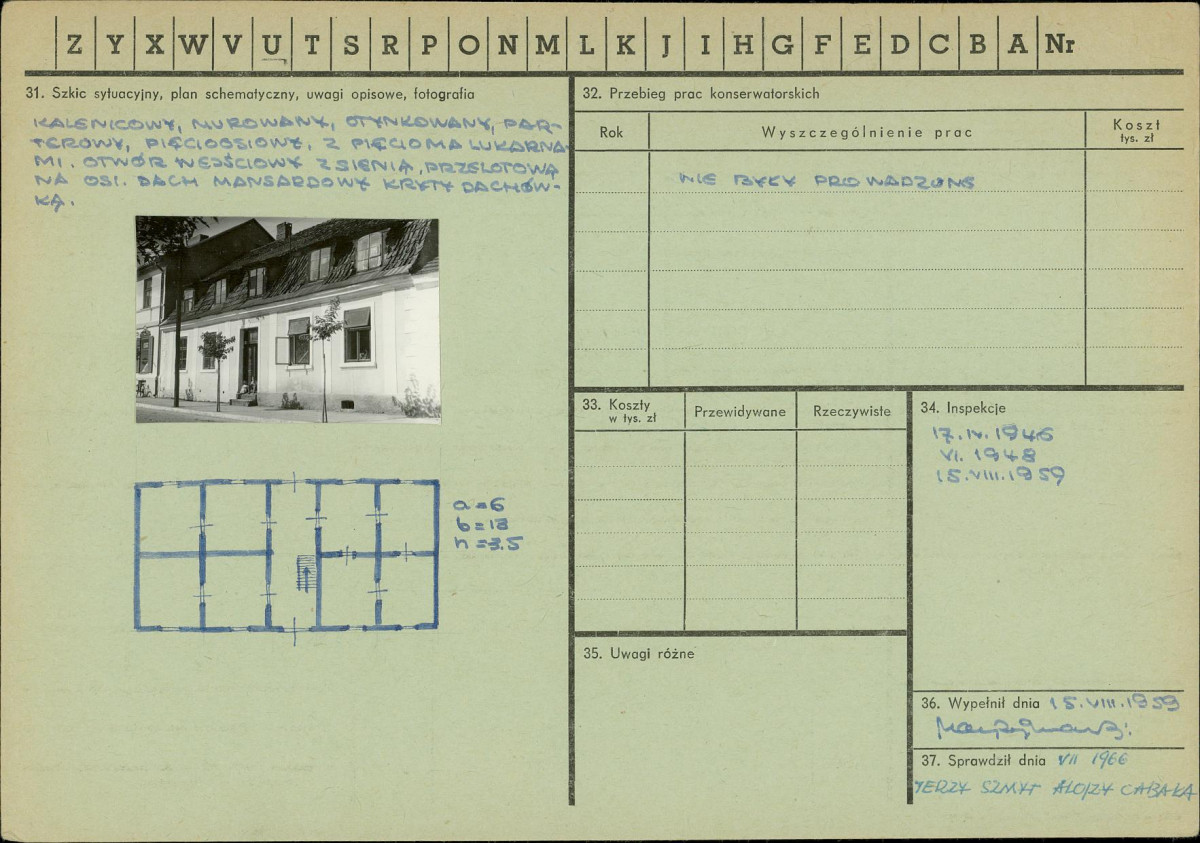 Z Y X W V U T S R P O N M L K J I H G F E D C B A Nr
31. Szkic sytuacyjny, plan schematyczny, uwagi opisowe, fotografia
KALENICOWY, MUROWANY, OTYNKOWANY, PAR-
TEROWY, PIĘCIOOSIOWY, Z PIĘCIOMA LUKARNA-
MI. OTWÓR WEJŚCIOWY Z SIENIĄ, PRZELOTOWĄ
NA OSI. DACH MANSARDOWY KRYTY DACHÓW-
KĄ.
a = 6
b = 13
h = 3.5
32. Przebieg prac konserwatorskich
Rok
Wyszczególnienie prac
Koszt
tys. zł
NIE BYŁY PROWADZONE
33. Koszty
w tys. zł
Przewidywane
Rzeczywiste
34. Inspekcje
17.IV.1946
VI. 1948
15.VIII.1959
35. Uwagi różne
36. Wypełnił dnia 15.VIII.1959
37. Sprawdził dnia VII 1966
JERZY SZMYT ALOJZY CABAŁA